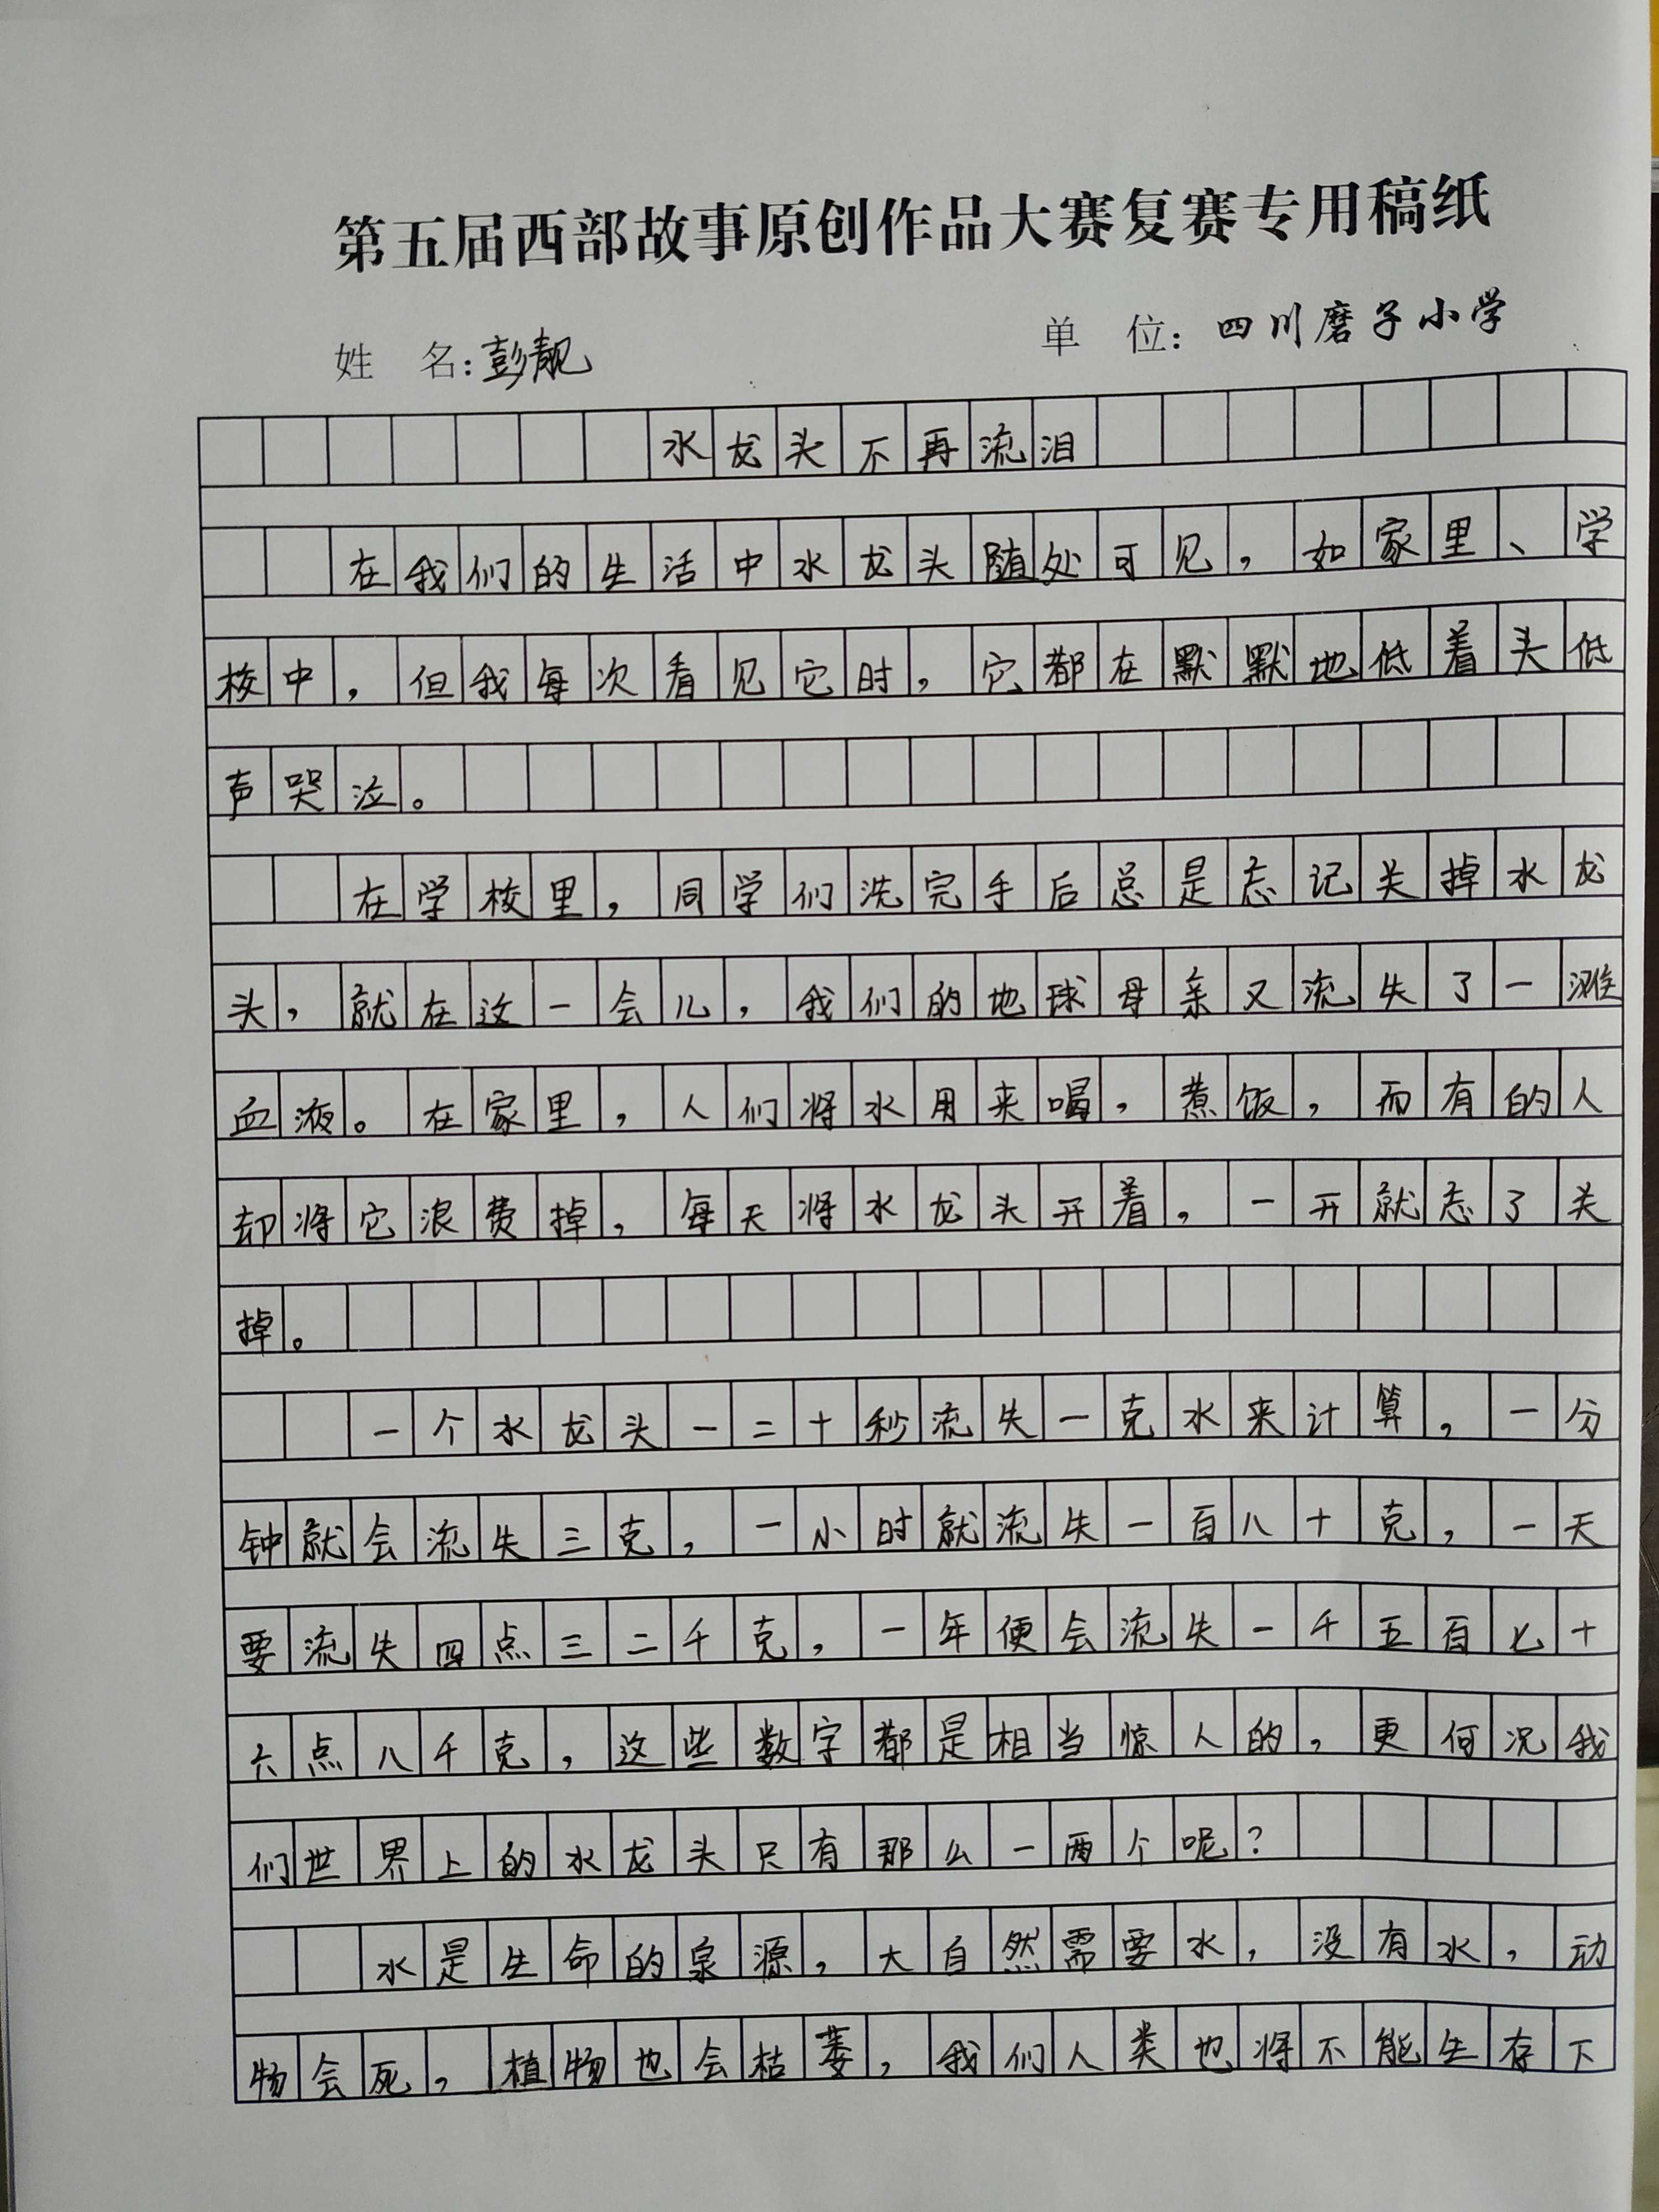 第五届西部故事原创作品大赛复赛专用稿纸
姓 名:彭靓 单 位:四川磨子小学
水龙头不再流泪
在我们的生活中水龙头随处可见,如家里、学
校中,但我每次看见它时,它都在默默地低着头低
声哭泣。
在学校里,同学们洗完手后总是忘记关掉水龙
头,就在这一会儿,我们的地球母亲又流失了一滩
血液。在家里,人们将水用来喝,煮饭,而有的人
却将它浪费掉,每天将水龙头开着,一开就忘了关
掉。
一个水龙头一二十秒流失一克水来计算,一分
钟就会流失三克,一小时就流失一百八十克,一天
要流失四点三二千克,一年便会流失一千五百七十
六点八千克,这些数字都是相当惊人的,更何况我
们世界上的水龙头只有那么一两个呢?
水是生命的泉源,大自然需要水,没有水,动
物会死,植物也会枯萎,我们人类也将不能生存下